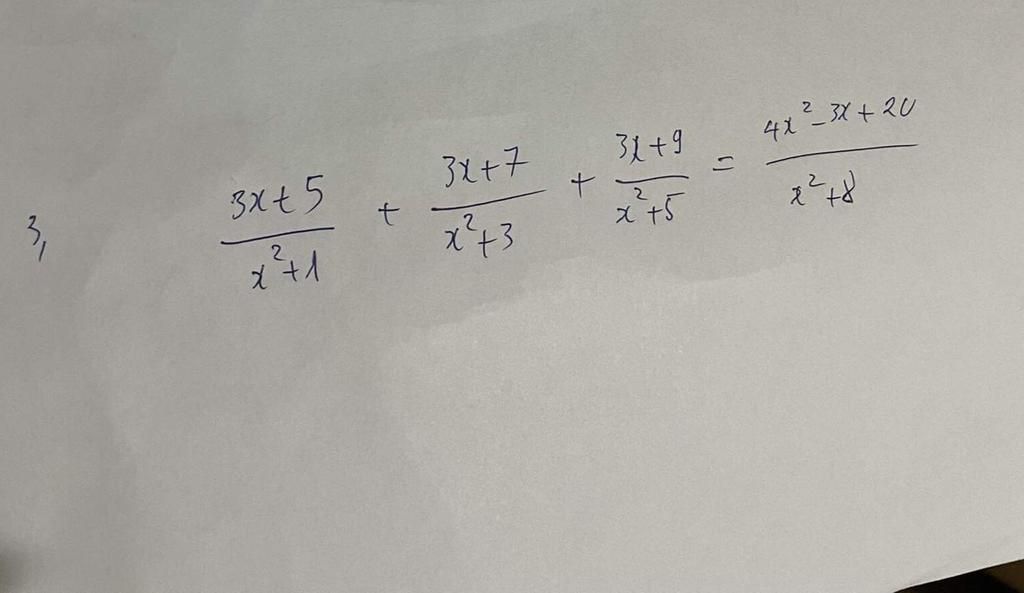 3, (3x+5)/(x²+1) + (3x+7)/(x²+3) + (3x+9)/(x²+5) = (4x²-3x+20)/(x²+8)